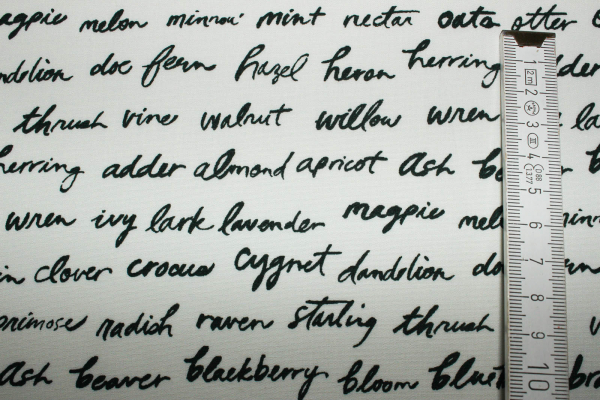 magpie melon minnow mint nectar oats otter
dandelion doe fern hazel heron herring
thrush vine walnut willow wren
herring adder almond apricot ash
wren ivy lark lavender magpie
clover crocus cygnet dandelion
primose radish raven starling thrush
ash beaver blackberry bloom
1 2 3 4 5 6 7 8 9 10